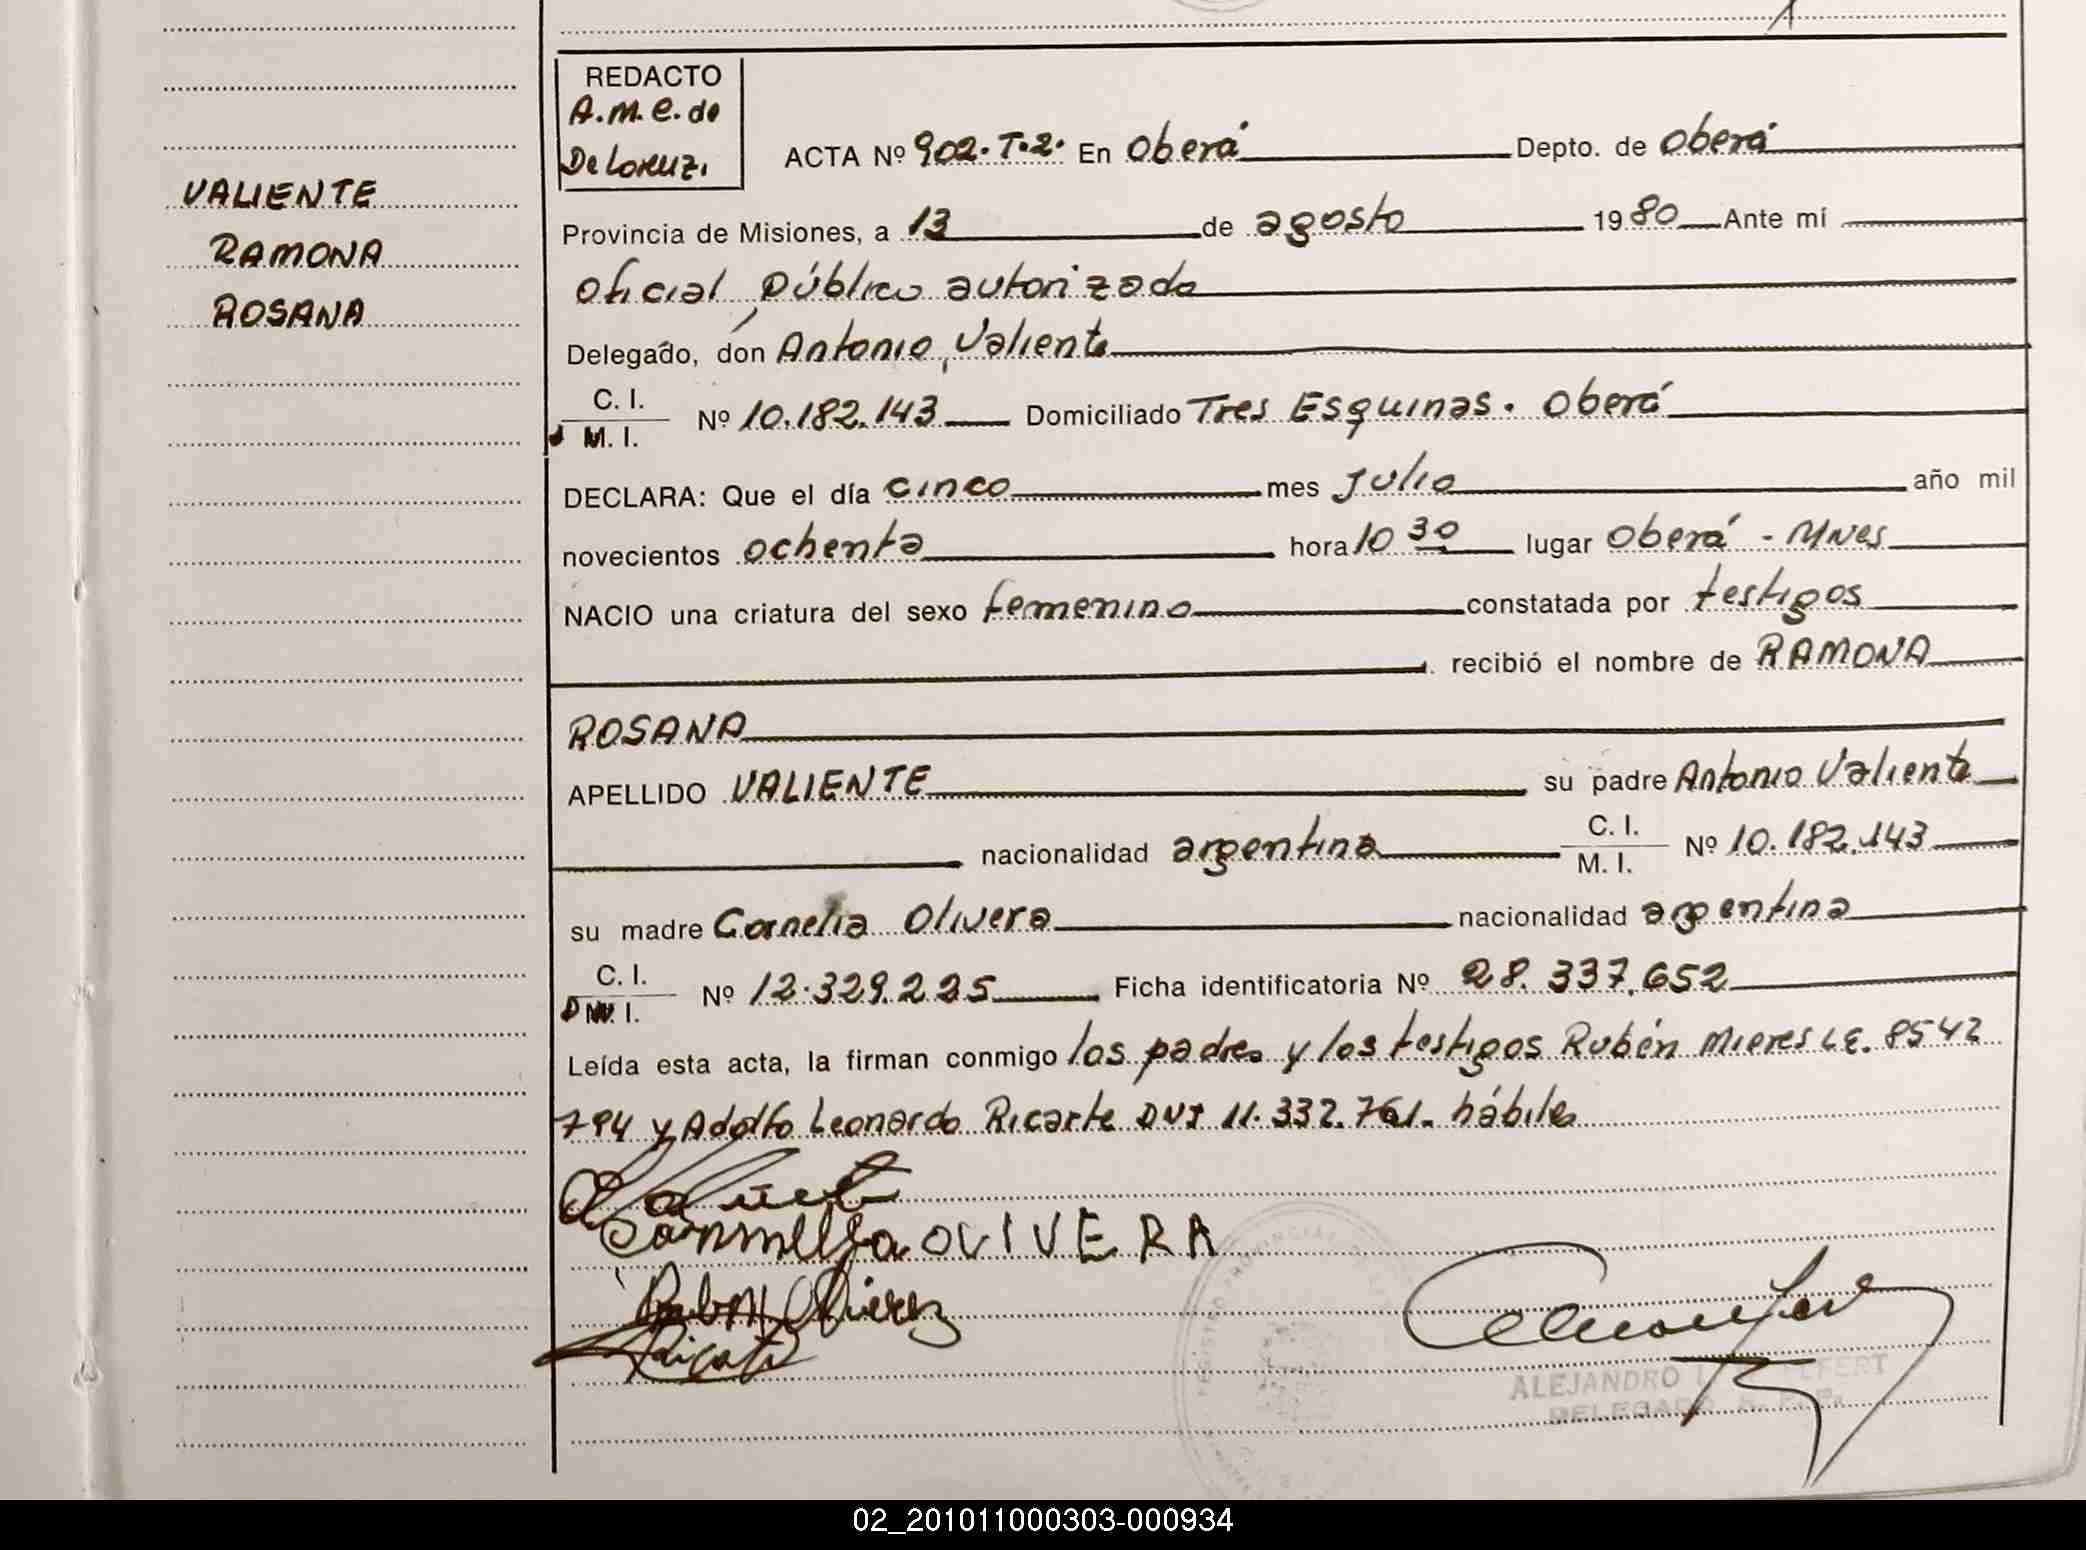 REDACTO
A.M.E. de
De Lorenzi
VALIENTE
RAMONA
ROSANA
ACTA Nº 902.T.2. En Oberá Depto. de Oberá
Provincia de Misiones, a 13 de agosto 1980 Ante mí
Oficial Público autorizado
Delegado, don Antonio Valiente
C. I.
M. I. Nº 10.182.143 Domiciliado Tres Esquinas. Oberá
DECLARA: Que el día cinco mes Julio año mil
novecientos ochenta hora 10 30 lugar Oberá - Mnes
NACIO una criatura del sexo femenino constatada por testigos
recibió el nombre de RAMONA
ROSANA
APELLIDO VALIENTE su padre Antonio Valiente
nacionalidad argentina C. I. M. I. Nº 10.182.143
su madre Cornelia Olivera nacionalidad argentina
C. I.
M. I. Nº 12.329.225 Ficha identificatoria Nº 28.337.652
Leída esta acta, la firman conmigo los padres y los testigos Rubén Mieres LE. 8542
794 y Adolfo Leonardo Ricarte DNI 11.332.761. hábiles
OLIVERA
REGISTRO PROVINCIAL
ALEJANDRO
DELEGADO
02_201011000303-000934